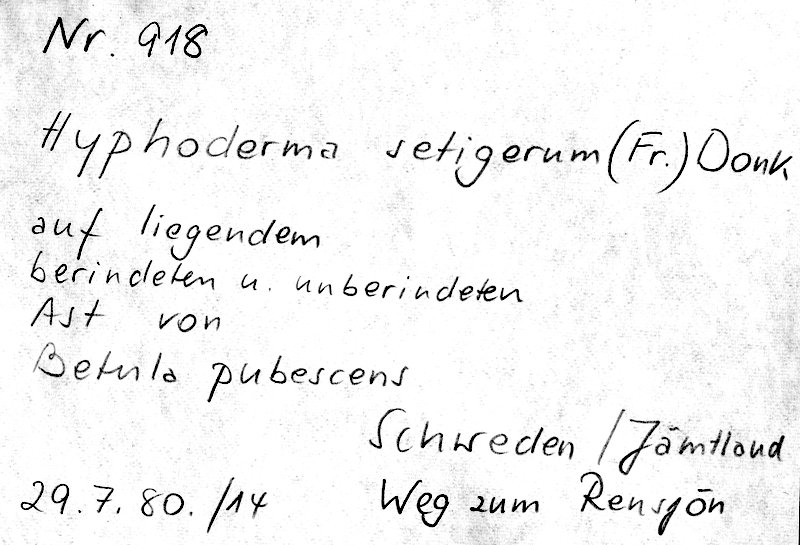 Nr. 918
Hyphoderma setigerum (Fr.) Donk
auf liegendem
berindeten u. unberindeten
Ast von
Betula pubescens
Schweden / Jämtland
29.7.80. /14 Weg zum Rensjön